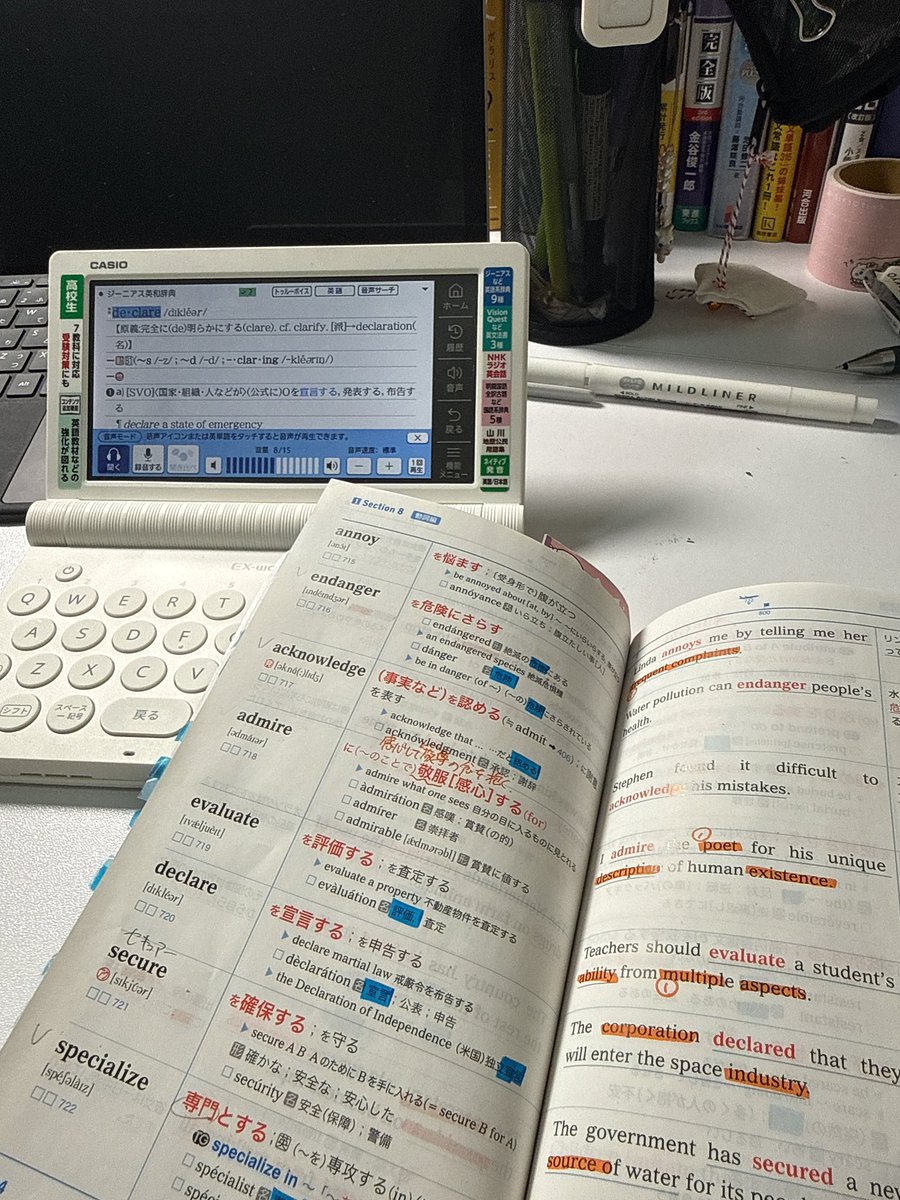 CASIO
高校生
7教科に対応
受験対策にも
コンテンツ追加機能
英語教材などの
強化が図れる
ジーニアス英和辞典
トゥルーボイス
英語
音声サーチ
de·clare /dɪkléər/
【原義:完全に(de)明らかにする(clare). cf. clarify. [派]→declaration(
名)】
(~s /-z/ ; ~d /-d/ ; -·clar·ing /-kléərɪŋ/)
❶ a) [SVO]〈国家・組織・人などが〉(公式に)Oを宣言する, 発表する, 布告す
る
¶ declare a state of emergency
音声モード
音声アイコンまたは英単語をタッチすると音声が再生できます。
聞く
録音する
聞き比べ
音量 8/15
音声速度: 標準
1回再生
ホーム
履歴
音声
戻る
機能メニュー
ジーニアス
など
英語系辞典
9種
Vision
Quest
など
英文法書
3種
NHK
ラジオ
英会話
明鏡国語
全訳古語
など
国語系辞典
5種
山川
地歴公民
用語集
ネイティブ
発音
英語/日本語
Q W E R T
A S D F
Z X C V
シフト
スペース・記号
戻る
MILDLINER
完全版
3rd edition
金谷俊一郎
東進
ブックス
河合出版
1 Section 8 動詞編
annoy
715
を悩ます;(受身形で)腹が立つ
be annoyed about[at, by] ~
annóyance 名 いら立ち;腹立たしい事[人]
endanger
716
を危険にさらす
endángered 形 絶滅の
an endangered species 絶滅危惧種
dánger 名 危険
be in danger (of ~) (~の)
にさらされている
acknowledge
[əkná(:)lɪdʒ]
717
(事実など)を認める(≒ admit → 406);に謝意
を表す
acknowledge that ... …だと認める
acknówledgment 名 承認;謝辞
admire
[ədmáɪər]
718
に(~のことで)敬服[感心]する(for)
admire what one sees 自分の目に入るものに見とれる
admirátion 名 感嘆;賞賛(の的)
admírer 名 崇拝者
admirable [ǽdmərəbl] 形 賞賛に値する
evaluate
[ɪvǽljuèɪt]
719
を評価する;を査定する
evaluate a property 不動産物件を査定する
evàluátion 名 評価, 査定
declare
[dɪkléər]
720
を宣言する;を申告する
declare martial law 戒厳令を布告する
dèclarátion 名 宣言;公表;申告
the Declaration of Independence (米国)独立宣言
セキュアー
secure
721
を確保する;を守る
secure A B AのためにBを手に入れる(= secure B for A)
形 確かな;安全な;安心した
secúrity 名 安全(保障);警備
specialize
[spéʃəlàɪz]
722
専門とする;英 (~を)専攻する(in)
TG specialize in ~
spécialist 名
800
annoys me by telling me her
frequent complaints.
Water pollution can endanger people's
health.
Stephen found it difficult to
acknowledge his mistakes.
I admire the poet for his unique
description of human existence.
Teachers should evaluate a student's
ability from multiple aspects.
The corporation declared that they
will enter the space industry.
The government has secured a new
source of water for its